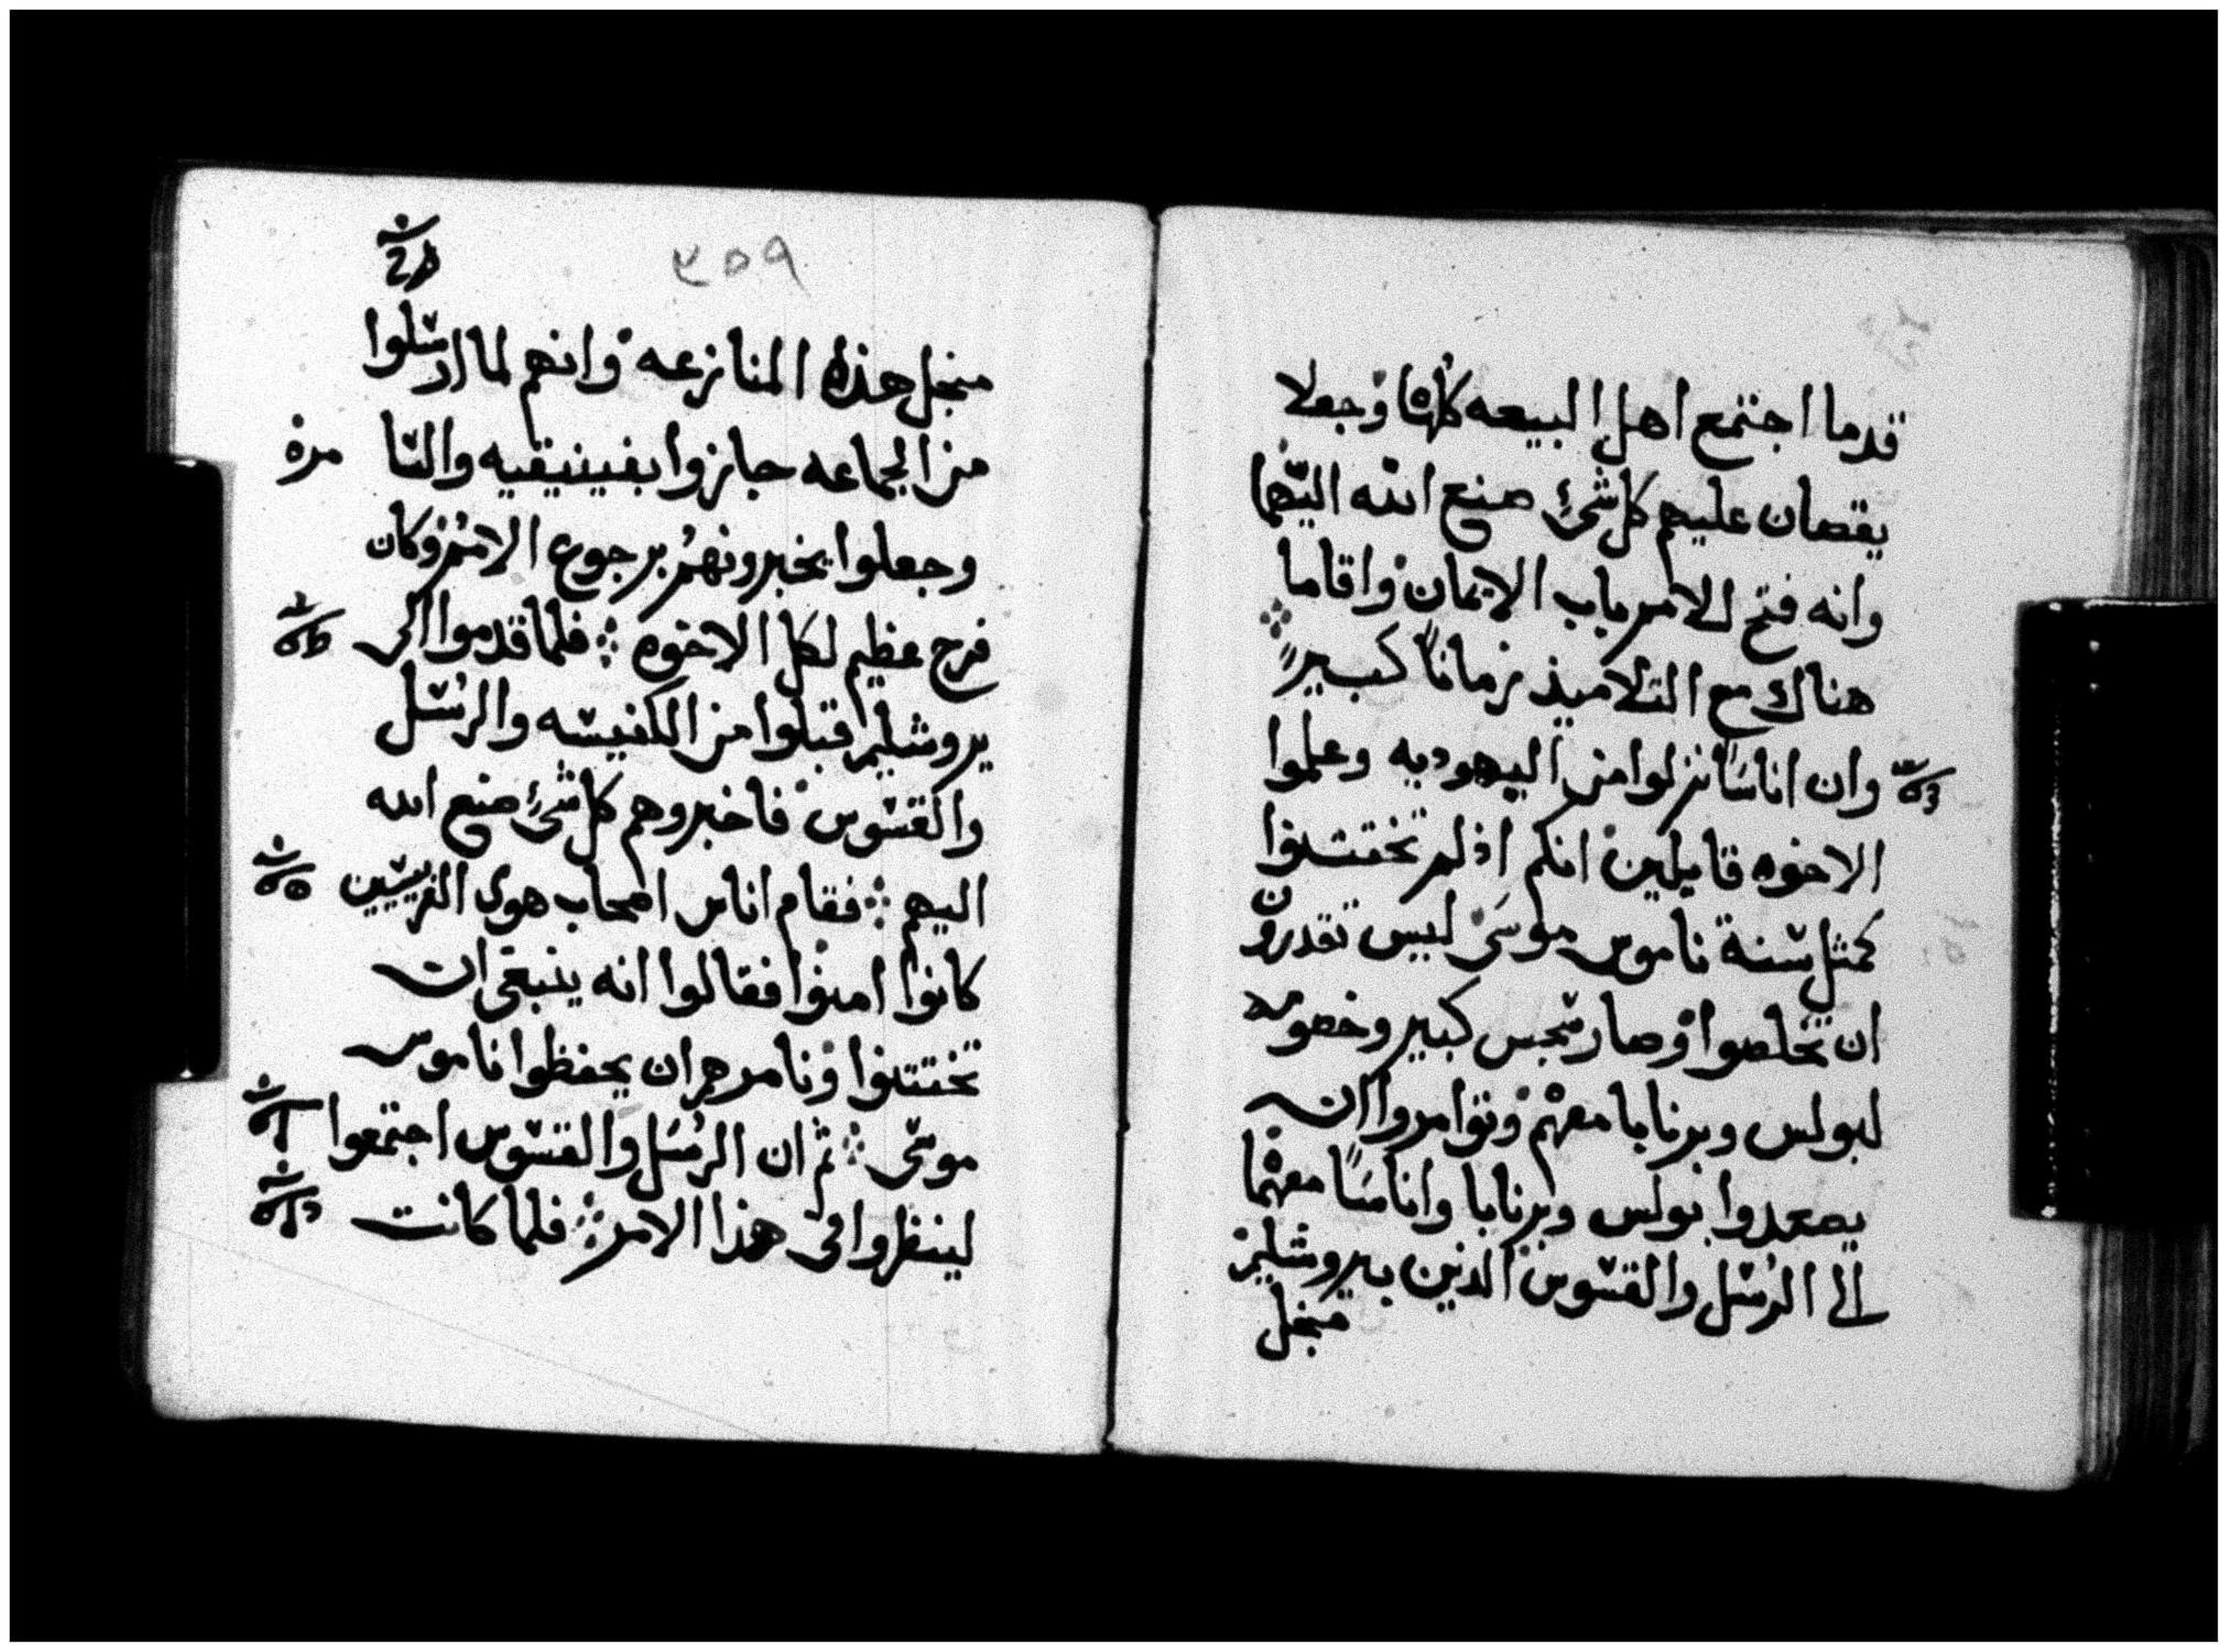 قدما اجتمع اهل البيعه كلها وجعلا
يقصان عليهم كل شئ صنع الله اليهما
وانه فتح للامم باب الايمان واقاما
هناك مع التلاميذ زمانا كبيرا
وان اناسا نزلوا من اليهوديه وعلموا
الاخوه قايلين انكم اذ لم تختتنوا
كمثل سنة ناموس موسى ليس تقدرون
ان تخلصوا وصار سجس كبير وخصومه
لبولس وبرنابا معهم وتوامروا ان
يصعدوا بولس وبرنابا واناسا معهما
الى الرسل والقسوس الذين بيروشليم
منجل
٣٥٩
منجل هذه المنازعه وانهم لما ارسلوا
من الجماعه جازوا بفينيقيه والسامره
وجعلوا يخبرونهم برجوع الامم وكان
فرح عظيم لكل الاخوه ܀ فلما قدموا الى
يروشليم قبلوا من الكنيسه والرسل
والقسوس فاخبروهم كل شئ صنع الله
اليهم ܀ فقام اناس اصحاب هوى الفريسيين
كانوا امنوا فقالوا انه ينبغى ان
تختتنوا ونامرهم ان يحفظوا ناموس
موسى ܀ ثم ان الرسل والقسوس اجتمعوا
لينظروا فى هذا الامر ܀ فلما كانت